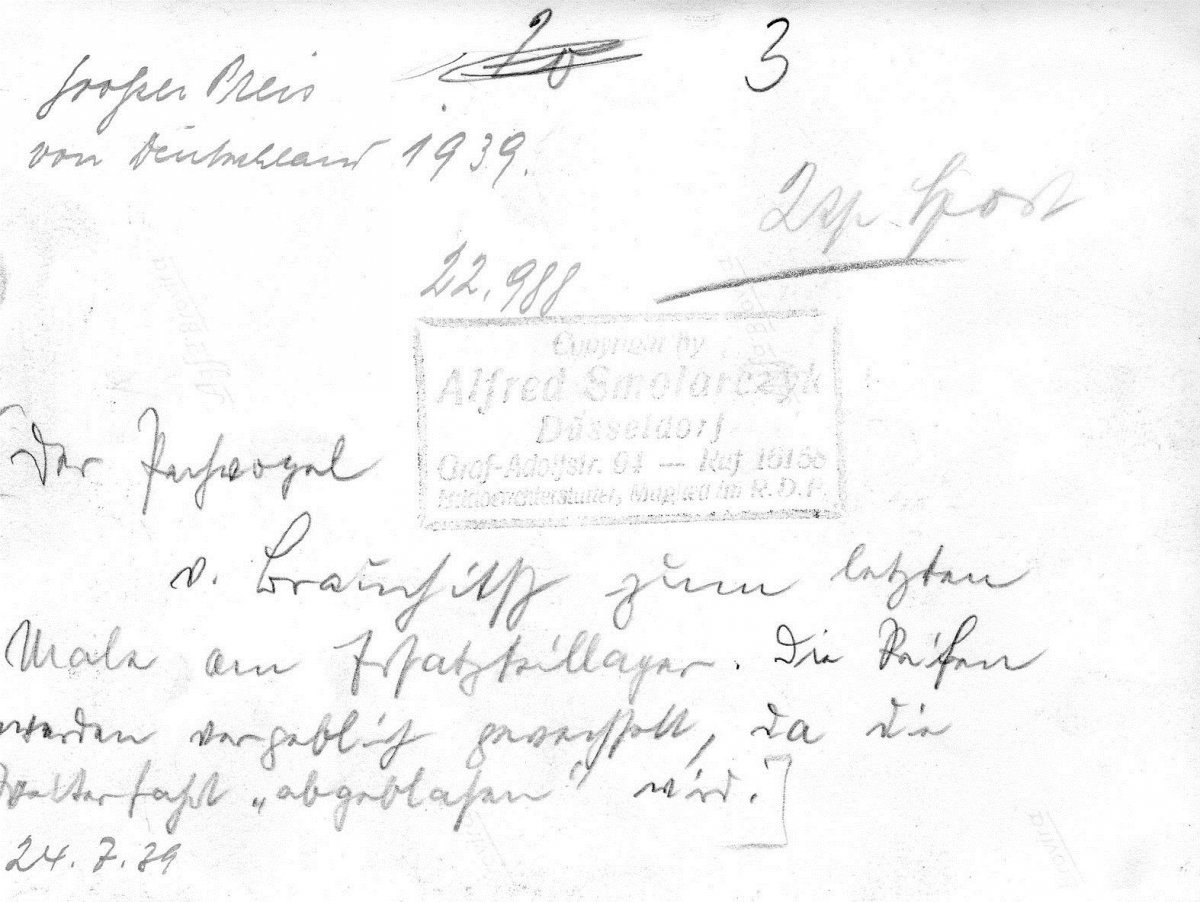 20 3
Großer Preis
von Deutschland 1939.
2sp. Sport
22.988
Copyright by
Alfred Smolarczyk
Düsseldorf
Graf-Adolfstr. 91 — Ruf 15156
Mitglied im R.D.P.
Der Pechvogel
v. Brauchitsch zum letzten
Male am Ersatzteillager. Die Reifen
werden vergeblich gewechselt, da die
Weiterfahrt „abgeblasen" wird.]
24.7.39